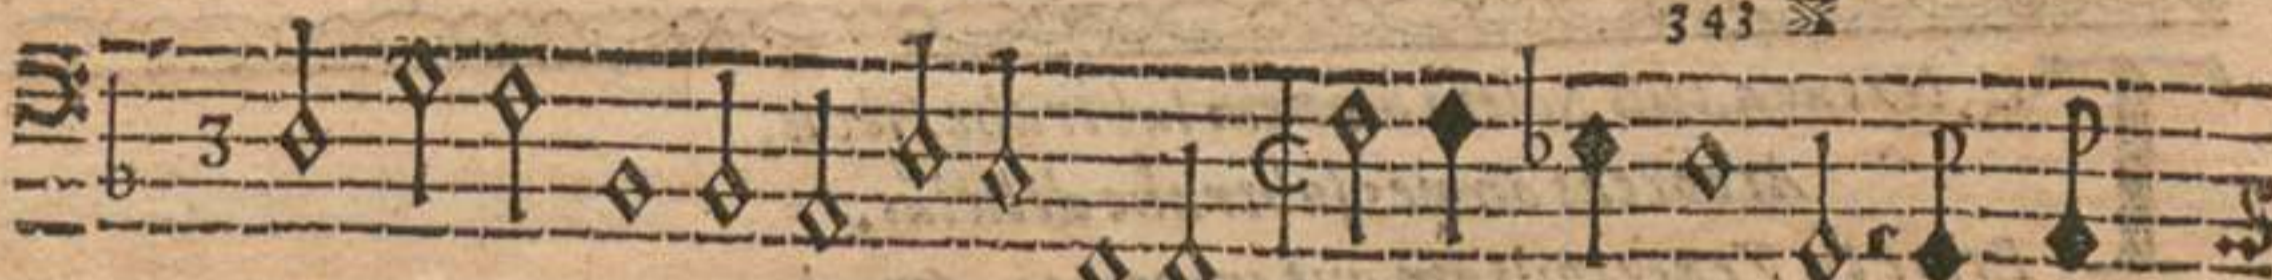 343
3